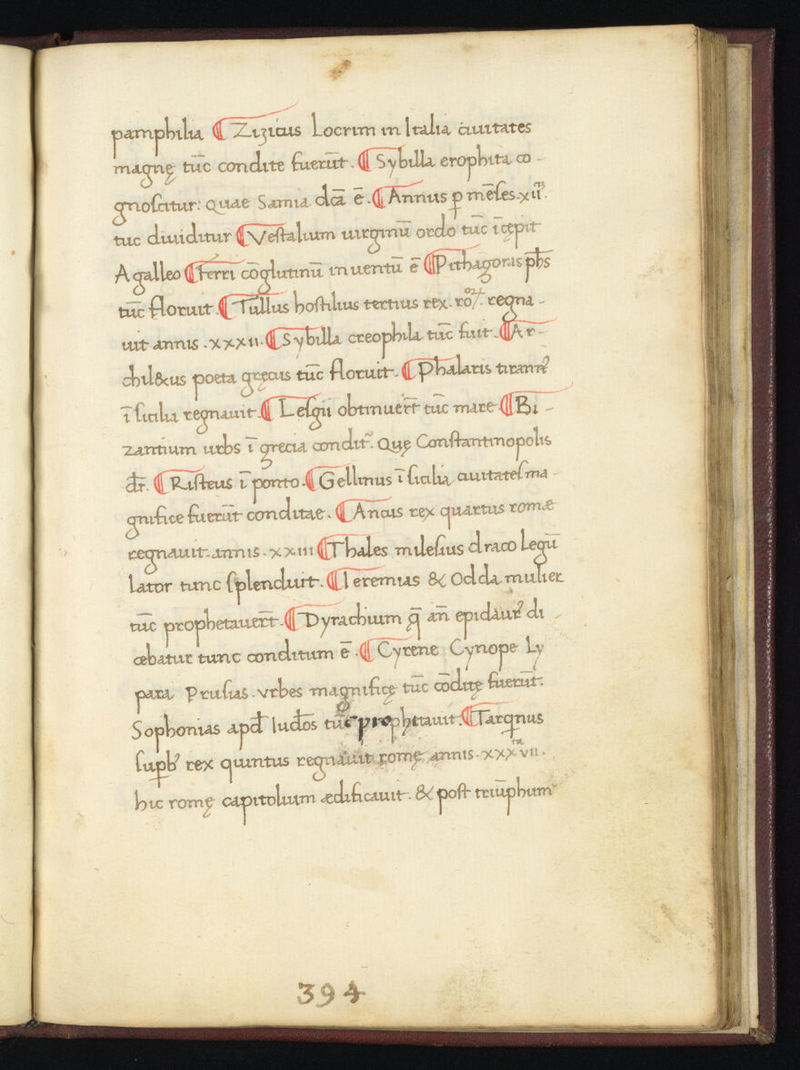 pamphilia ¶ Zizicus Locrim in Italia ciuitates
magnę tūc condite fuerūt. ¶ Sybilla erophita co-
gnoscitur: quae Samia dc̄a ē. ¶ Annus ꝑ mēses. xii.
tuc diuiditur ¶ Vestalium uirginū ordo tūc īcępit
A galleo ¶ ferri cōglutinū inuentū ē ¶ Pithagoras phs̄
tūc floruit. ¶ Tullus hostilius tertius rex. roꝝ. regna-
uit annis. xxxii. ¶ Sybilla creophila tūc fuit. ¶ Ar-
chil&us poeta gręcus tūc floruit. ¶ Phalaris tirann᾽
ī sicilia regnauit. ¶ Lesgii obtinuert̄ tūc mare ¶ Bi-
zantium urbs ī grecia condit᾽. Quę Constantinopolis
dr̄. ¶ Risteus ī ponto. ¶ Gellinus ī sicilia ciuitates ma-
gnifice fuerūt conditae. ¶ Ancus rex quartus romæ
regnauit. annis. xxiii ¶ Thales milesius draco Legū
lator tunc splenduit. ¶ Ieremias & Odda mulier
tūc prophetauert̄. ¶ Dyrachium q̄ an̄ epidaur᾽ di-
cebatur tunc conditum ē. ¶ Cyrene Cynope Ly
para Prusias. vrbes magnificę tūc cōditę fuerūt.
Sophonias apd̄ Iudōs tūc prophetauit. ¶ Tarqnus
suꝑb᾽ rex quintus regnauit romę annis. xxxvii.
hic romę capitolium ædificauit. & post triūphum
394